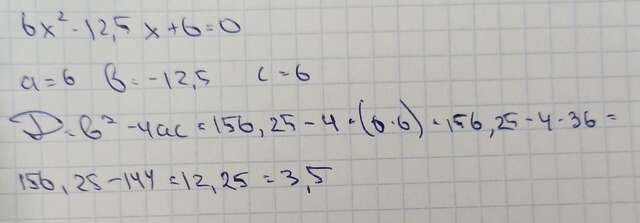 6x² - 12,5x + 6 = 0
a = 6 b = -12,5 c = 6
D = b² - 4ac = 156,25 - 4 · (6 · 6) = 156,25 - 4 · 36 =
156,25 - 144 = 12,25 = 3,5